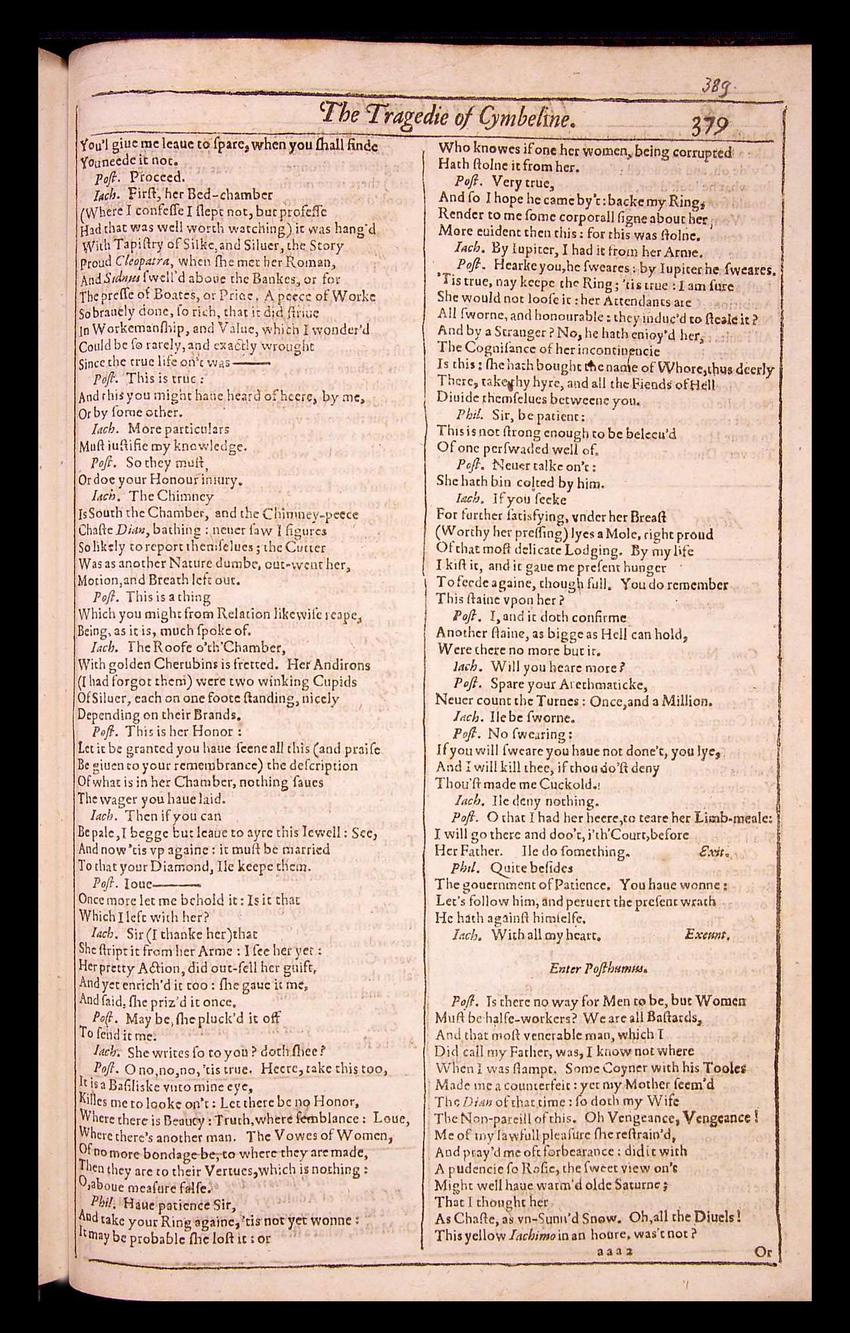 389.
The Tragedie of Cymbeline.
379
You'l giue me leaue to spare, when you shall finde
You neede it not.
Post. Proceed.
Iach. First, her Bed-chamber
(Where I confesse I slept not, but professe
Had that was well worth watching) it was hang'd
With Tapistry of Silke, and Siluer, the Story
Proud Cleopatra, when she met her Roman,
And Sidnus swell'd aboue the Bankes, or for
The presse of Boates, or Pride. A peece of Worke
So brauely done, so rich, that it did striue
In Workemanship, and Value, which I wonder'd
Could be so rarely, and exactly wrought
Since the true life on't was———
Post. This is true:
And this you might haue heard of heere, by me,
Or by some other.
Iach. More particulars
Must iustifie my knowledge.
Post. So they must,
Or doe your Honour iniury.
Iach. The Chimney
Is South the Chamber, and the Chimney-peece
Chaste Dian, bathing: neuer saw I figures
So likely to report themselues; the Cutter
Was as another Nature dumbe, out-went her,
Motion, and Breath left out.
Post. This is a thing
Which you might from Relation likewise reape,
Being, as it is, much spoke of.
Iach. The Roofe o'th'Chamber,
With golden Cherubins is fretted. Her Andirons
(I had forgot them) were two winking Cupids
Of Siluer, each on one foote standing, nicely
Depending on their Brands.
Post. This is her Honor:
Let it be granted you haue seene all this (and praise
Be giuen to your remembrance) the description
Of what is in her Chamber, nothing saues
The wager you haue laid.
Iach. Then if you can
Be pale, I begge but leaue to ayre this Iewell: See,
And now 'tis vp againe: it must be married
To that your Diamond, Ile keepe them.
Post. Ioue———
Once more let me behold it: Is it that
Which I left with her?
Iach. Sir (I thanke her) that
She stript it from her Arme: I see her yet:
Her pretty Action, did out-sell her guift,
And yet enrich'd it too: she gaue it me,
And said, she priz'd it once.
Post. May be, she pluck'd it off
To send it me.
Iach. She writes so to you? doth shee?
Post. O no, no, no, 'tis true. Heere, take this too,
It is a Basiliske vnto mine eye,
Killes me to looke on't: Let there be no Honor,
Where there is Beauty: Truth, where semblance: Loue,
Where there's another man. The Vowes of Women,
Of no more bondage be, to where they are made,
Then they are to their Vertues, which is nothing:
O, aboue measure false.
Phil. Haue patience Sir,
And take your Ring againe, 'tis not yet wonne:
It may be probable she lost it: or
Who knowes if one her women, being corrupted
Hath stolne it from her.
Post. Very true,
And so I hope he came by't: backe my Ring,
Render to me some corporall signe about her,
More euident then this: for this was stolne.
Iach. By Iupiter, I had it from her Arme.
Post. Hearke you, he sweares: by Iupiter he sweares.
'Tis true, nay keepe the Ring; 'tis true: I am sure
She would not loose it: her Attendants are
All sworne, and honourable: they induc'd to steale it?
And by a Stranger? No, he hath enioy'd her,
The Cognisance of her incontinencie
Is this: she hath bought the name of Whore, thus deerly
There, take thy hyre, and all the Fiends of Hell
Diuide themselues betweene you.
Phil. Sir, be patient:
This is not strong enough to be beleeu'd
Of one perswaded well of.
Post. Neuer talke on't:
She hath bin colted by him.
Iach. If you seeke
For further satisfying, vnder her Breast
(Worthy her pressing) lyes a Mole, right proud
Of that most delicate Lodging. By my life
I kist it, and it gaue me present hunger
To feede againe, though full. You do remember
This staine vpon her?
Post. I, and it doth confirme
Another staine, as bigge as Hell can hold,
Were there no more but it.
Iach. Will you heare more?
Post. Spare your Arethmaticke,
Neuer count the Turnes: Once, and a Million.
Iach. Ile be sworne.
Post. No swearing:
If you will sweare you haue not done't, you lye,
And I will kill thee, if thou do'st deny
Thou'st made me Cuckold.
Iach. Ile deny nothing.
Post. O that I had her heere, to teare her Limb-meale:
I will go there and doo't, i'th'Court, before
Her Father. Ile do something. Exit.
Phil. Quite besides
The gouernment of Patience. You haue wonne:
Let's follow him, and peruert the present wrath
He hath against himselfe.
Iach. With all my heart. Exeunt.
Enter Posthumus.
Post. Is there no way for Men to be, but Women
Must be halfe-workers? We are all Bastards,
And that most venerable man, which I
Did call my Father, was, I know not where
When I was stampt. Some Coyner with his Tooles
Made me a counterfeit: yet my Mother seem'd
The Dian of that time: so doth my Wife
The Non-pareill of this. Oh Vengeance, Vengeance!
Me of my lawfull pleasure she restrain'd,
And pray'd me oft forbearance: did it with
A pudencie so Rosie, the sweet view on't
Might well haue warm'd olde Saturne;
That I thought her
As Chaste, as vn-Sunn'd Snow. Oh, all the Diuels!
This yellow Iachimo in an houre, was't not?
aaa2
Or